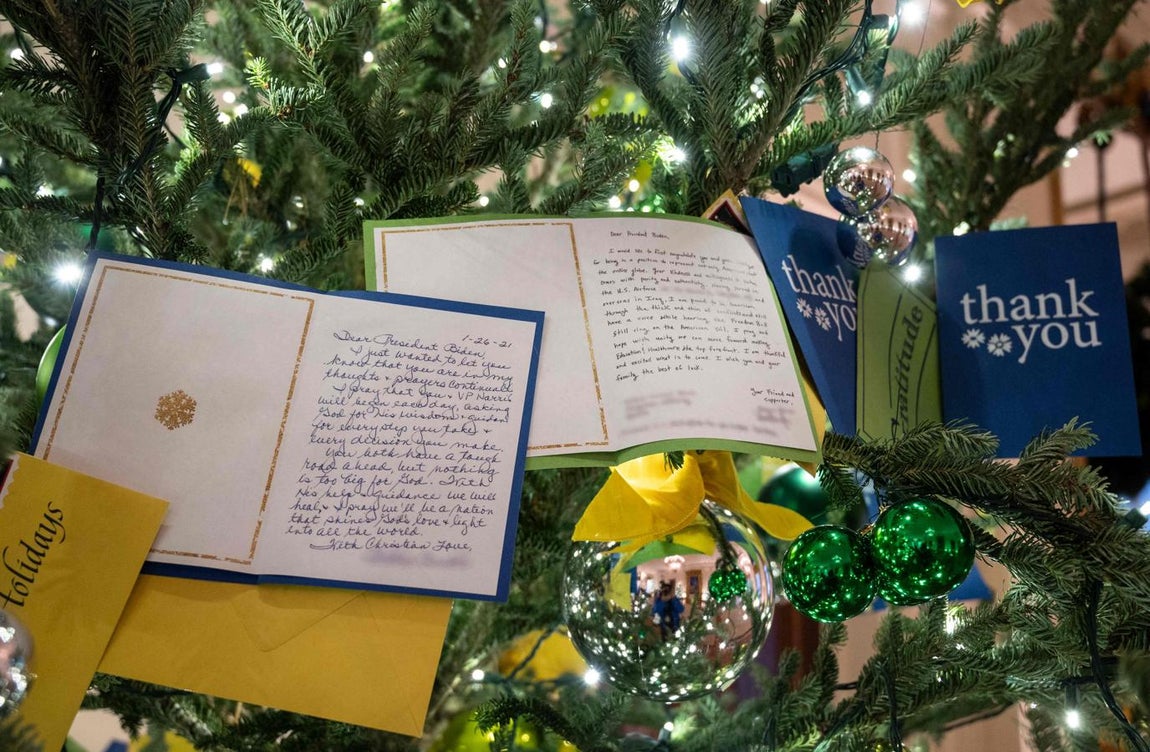 Holidays
1-26-21
Dear President Biden,
I just wanted to let you
know that you are in my
thoughts & prayers continually
I pray that you & VP Harris
will begin each day, asking
God for His wisdom & guidan
for every step you take &
every decision you make.
You both have a tough
road ahead, but nothing
is too big for God. With
His help & guidance we will
heal, & I pray we'll be a nation
that shines God's love & light
into all the world.
With Christian Love,
Dear President Biden,
I would like to first congratulate you and
for being in a position to represent not only America
the entire globe. Your kindness and willingness to
others with purity and authenticity. Having served in
the U.S. Airforce
overseas in Iraq, I am proud to be American
through the thick and thin of and still
have a voice while hearing the Freedom Bell
still ring on the American Soil. I pray and
hope with unity we can move forward making
Education/Healthcare the top forefront. I am thankful
and excited what is to come. I wish you and your
family the best of luck.
Your Friend and
Supporter,
thank
you
Gratitude
thank
you